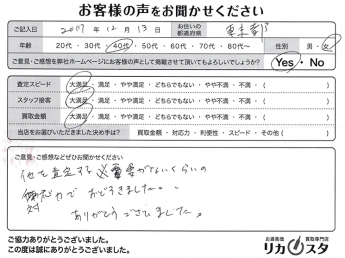 お客様の声をお聞かせください
ご記入日 2017年 12月 13日 お住いの都道府県 東京都
年齢 20代・30代・40代・50代・60代・70代・80代～ 性別 男・女
ご意見・ご感想を弊社ホームページにお客様の声として掲載させて頂いてもよろしいでしょうか? Yes・No
査定スピード 大満足・満足・どちらでもない・やや不満・不満・( )
スタッフ接客 大満足・満足・どちらでもない・やや不満・不満・( )
買取金額 大満足・満足・どちらでもない・やや不満・不満・( )
当店をお選びいただきました決め手は? 買取金額・対応力・利便性・スピード・その他( )
ご意見・ご感想などぜひお聞かせください
他を査定する必要がないくらいの
対応力でおどろきました。
ありがとうございました。
ご協力ありがとうございました。
この度は誠にありがとうございました。
お酒高価買取専門店
リカスタ